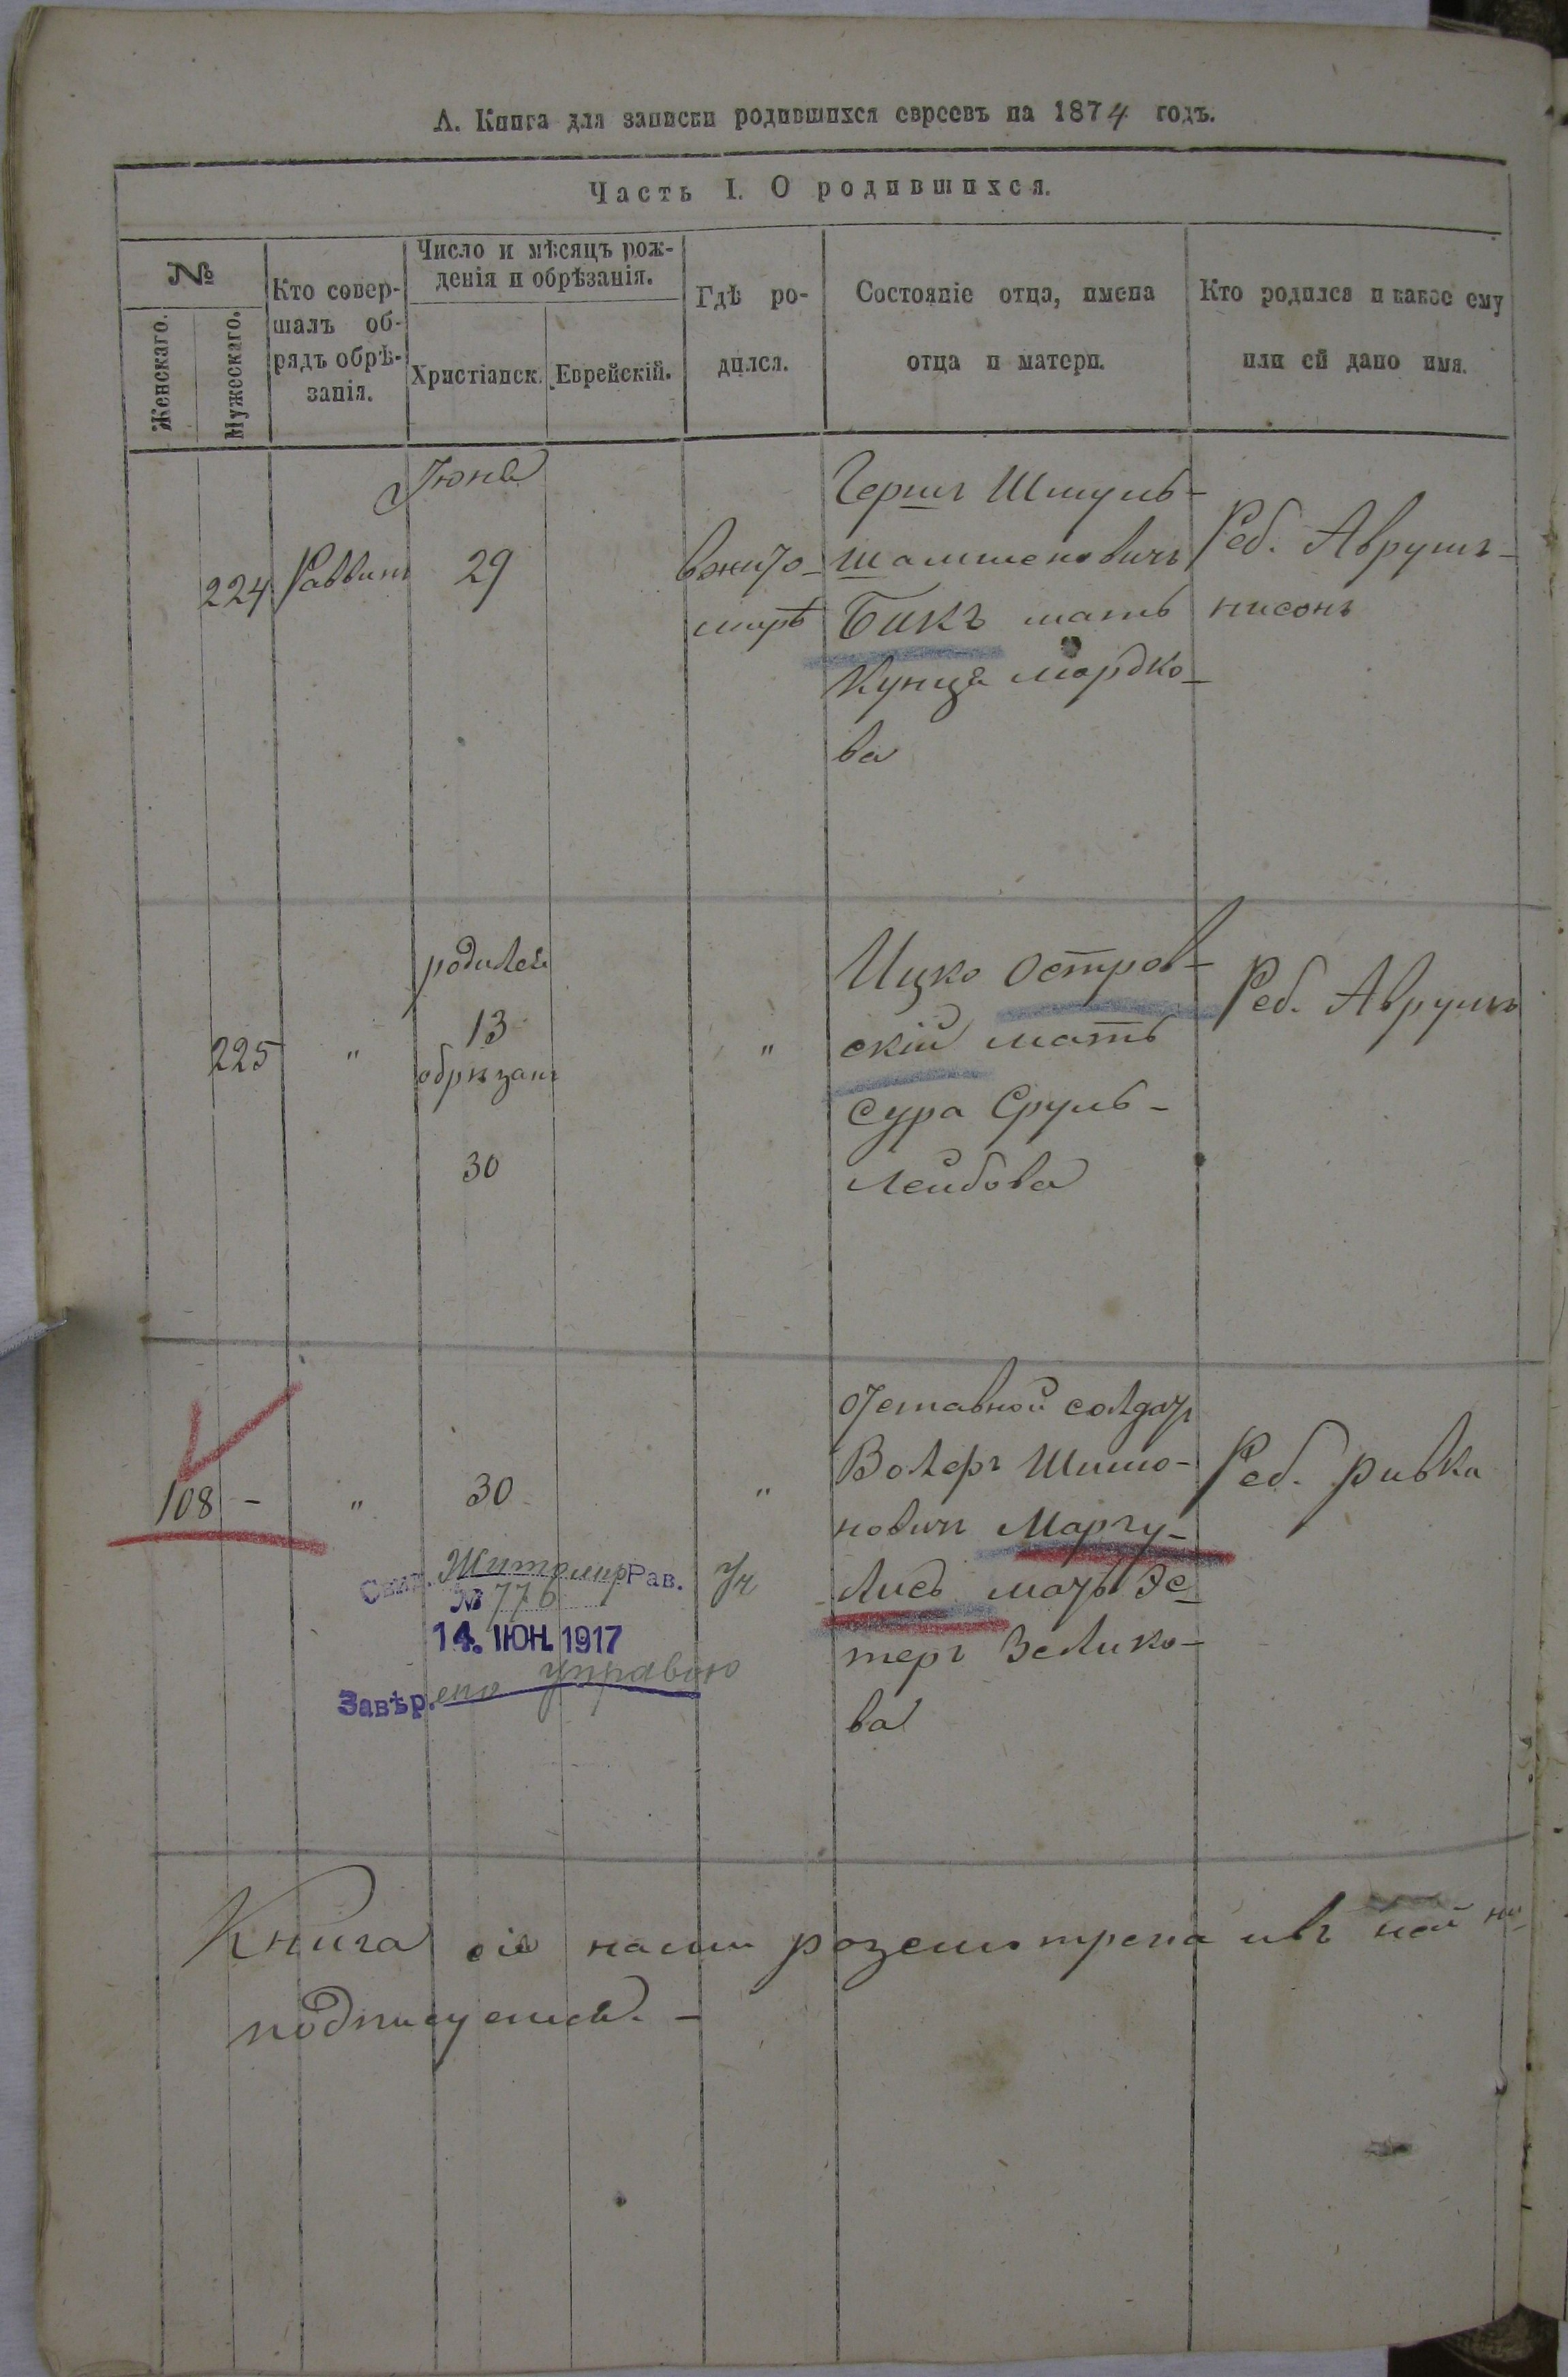 А. Книга для записки родившихся евреевъ на 1874 годъ.
Часть I. О родившихся.
№
Женскаго.
Мужескаго.
Кто совер-
шалъ об-
рядъ обрѣ-
занія.
Число и мѣсяцъ рож-
денія и обрѣзанія.
Христіанск.
Еврейскій.
Гдѣ ро-
дился.
Состояніе отца, имена
отца и матери.
Кто родился и какое ему
или ей дано имя.
Июня
224
Раввинъ
29
вжито-
мирѣ
Гершъ Шмуль-
шамшеновичъ
Бикъ мать
Кунца мордко-
ва
Реб. Аврумъ-
нисонъ
225
"
родился
13
обрѣзанъ
30
"
Ицко Остров-
скій мать
Сура Сруль-
Лейбова
Реб. Аврумъ
108 -
"
30
"
отставной солдатъ
Волфъ Шимо-
новичъ Маргу-
лисъ мать Эс-
теръ Зелико-
ва
Реб. ривка
Житомир Рав.
№ 776
14. ІЮН. 1917
Завѣр. ено управою
Книга сія нами розсмотрена ивъ ней
подписуемся. -